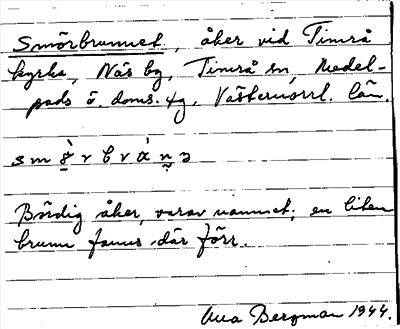 Smörbrunnet, åker vid Timrå
kyrka, Näs by, Timrå sn, Medel-
pads ö. doms. tg, Västernorrl. län.
Bördig åker, varav namnet; en liten
brunn fanns där förr.
Bergman 1944.